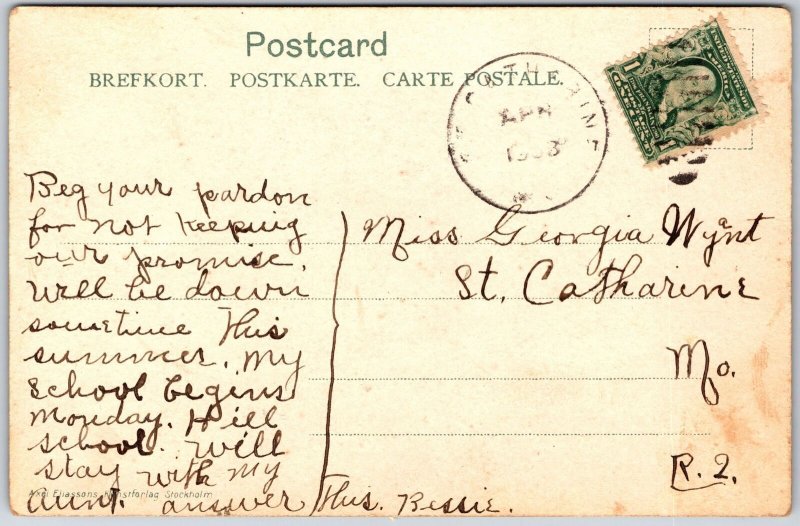 Postcard
BREFKORT. POSTKARTE. CARTE POSTALE.
APR
Beg your pardon
for not keeping
our promise.
Will be down
sometime this
summer. My
school begins
Monday. Hill
school. Will
stay with my
aunt. answer this. Bessie.
Axel Eliassons Konstförlag Stockholm
Miss Georgia Wyant
St. Catharine
Mo.
R. 2.